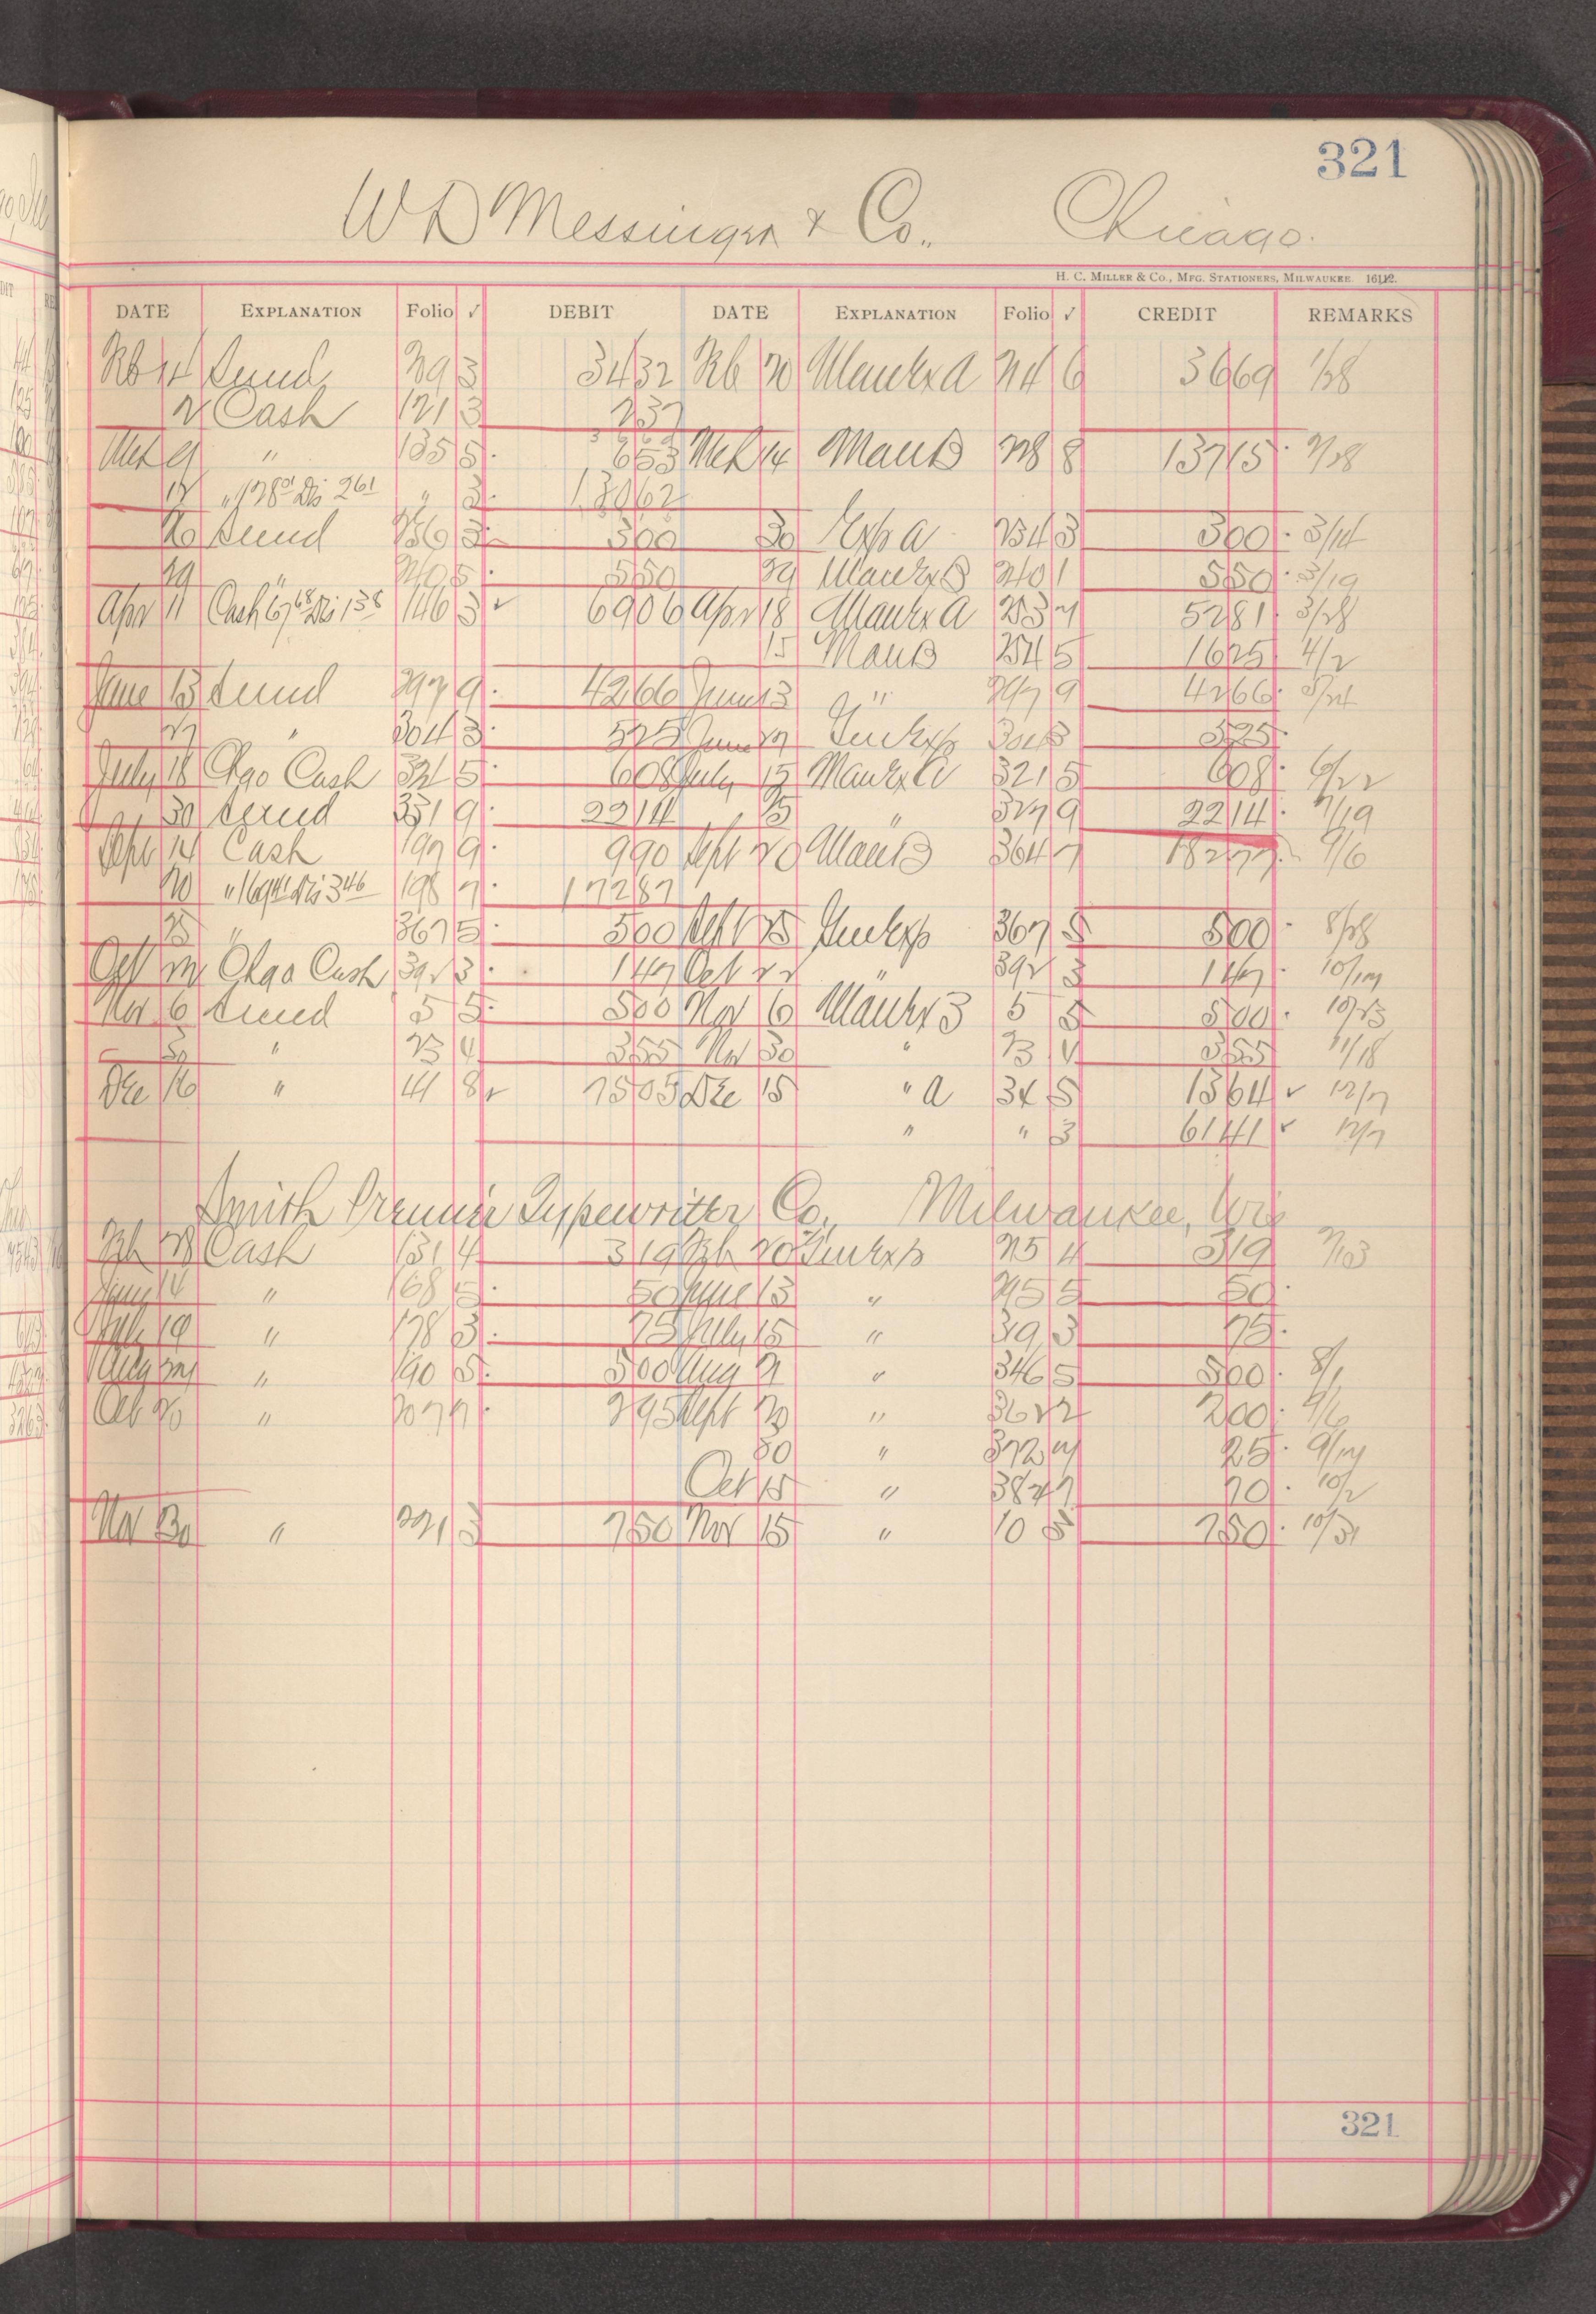 321
W D Messinger & Co. Chicago.
H. C. Miller & Co., Mfg. Stationers, Milwaukee 16112.
DATE Explanation Folio ✓ DEBIT DATE Explanation Folio ✓ CREDIT REMARKS
Feb 14 Sund 393 3432 Feb 20 Manex A 6 3669 1/28
2 Cash 121 3 237
Mch 9 " 135 5 653 Mch 14 Man B 8 13715 2/28
12 " Dis 261 " 3 13062
Sund 3 500 30 Exp A 3 500 3/14
" 5 550 Manex B 1 550 3/19
Apr 11 Cash 67 68 Dis 138 146 3 ✓ 6906 Apr 18 Manex A 5281 3/28
15 Man B 5 1625 4/2
June 13 Sund 297 9 4266 June 13 " 297 9 4266 5/24
27 " 304 3 525 June 27 Genexp 304 3 525
July 18 Chgo Cash 321 5 608 July 15 Manex A 321 5 608 6/22
30 Sund 331 9 2214 15 " 9 2214 7/19
Sept 14 Cash 197 9 990 Sept 20 Man B 364 7 18277 9/6
20 " Dis 346 198 7 17287
25 " 367 5 500 Sept 25 Genexp 367 5 500 8/28
Oct 22 Chgo Cash 392 3 147 Oct 22 " 392 3 147
Nov 6 Sund 5 5 500 Nov 6 Manex B 5 5 500 10/23
30 " 23 4 355 Nov 30 " 23 4 355 11/18
Dec 16 " 41 8 ✓ 7505 Dec 15 " A 34 5 1364 ✓ 12/7
" " 3 6141 ✓ 12/7
Smith Premier Typewriter Co., Milwaukee, Wis
Feb 28 Cash 131 4 319 Feb 20 Genexp 215 4 319 2/13
June 14 " 168 5 50 June 13 " 295 5 50
July 19 " 178 3 75 July 15 " 3 75
Aug " 190 5 500 Aug 2 " 346 5 500 8/1
Oct 20 " 207 7 295 Sept 20 " 362 2 200 9/6
30 " 372 25
Oct 15 " 70 10/2
Nov 30 " 221 3 750 Nov 15 " 10 5 750 10/31
321